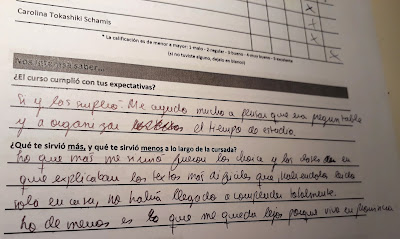 Carolina Tokashiki Schamis
X
X
X
X
* La calificación es de menor a mayor: 1 malo - 2 regular - 3 bueno - 4 muy bueno - 5 excelente
(si no tuviste alguno, dejalo en blanco)
Nos interesa saber...
¿El curso cumplió con tus expectativas?
Si y los suplio. Me ayudo mucho a pensar que era preguntable
y a organizar el tiempo de estudio.
¿Qué te sirvió más, y qué te sirvió menos a lo largo de la cursada?
Lo que más me sirvió fueron los choice y las clases en
que explicaban los textos más dificiles que
solo en casa, no habia llegado a comprender totalmente.
Lo de menos es lo que me queda lejos porque vivo en provincia